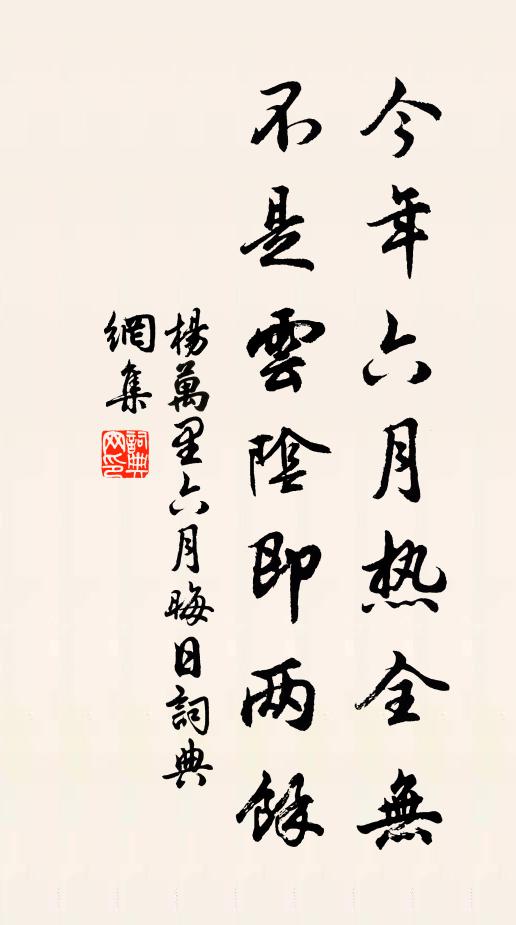 今年六月热全無
不是雲陰即两餘
楊萬里六月晦日詞典
網集
詞典
网印